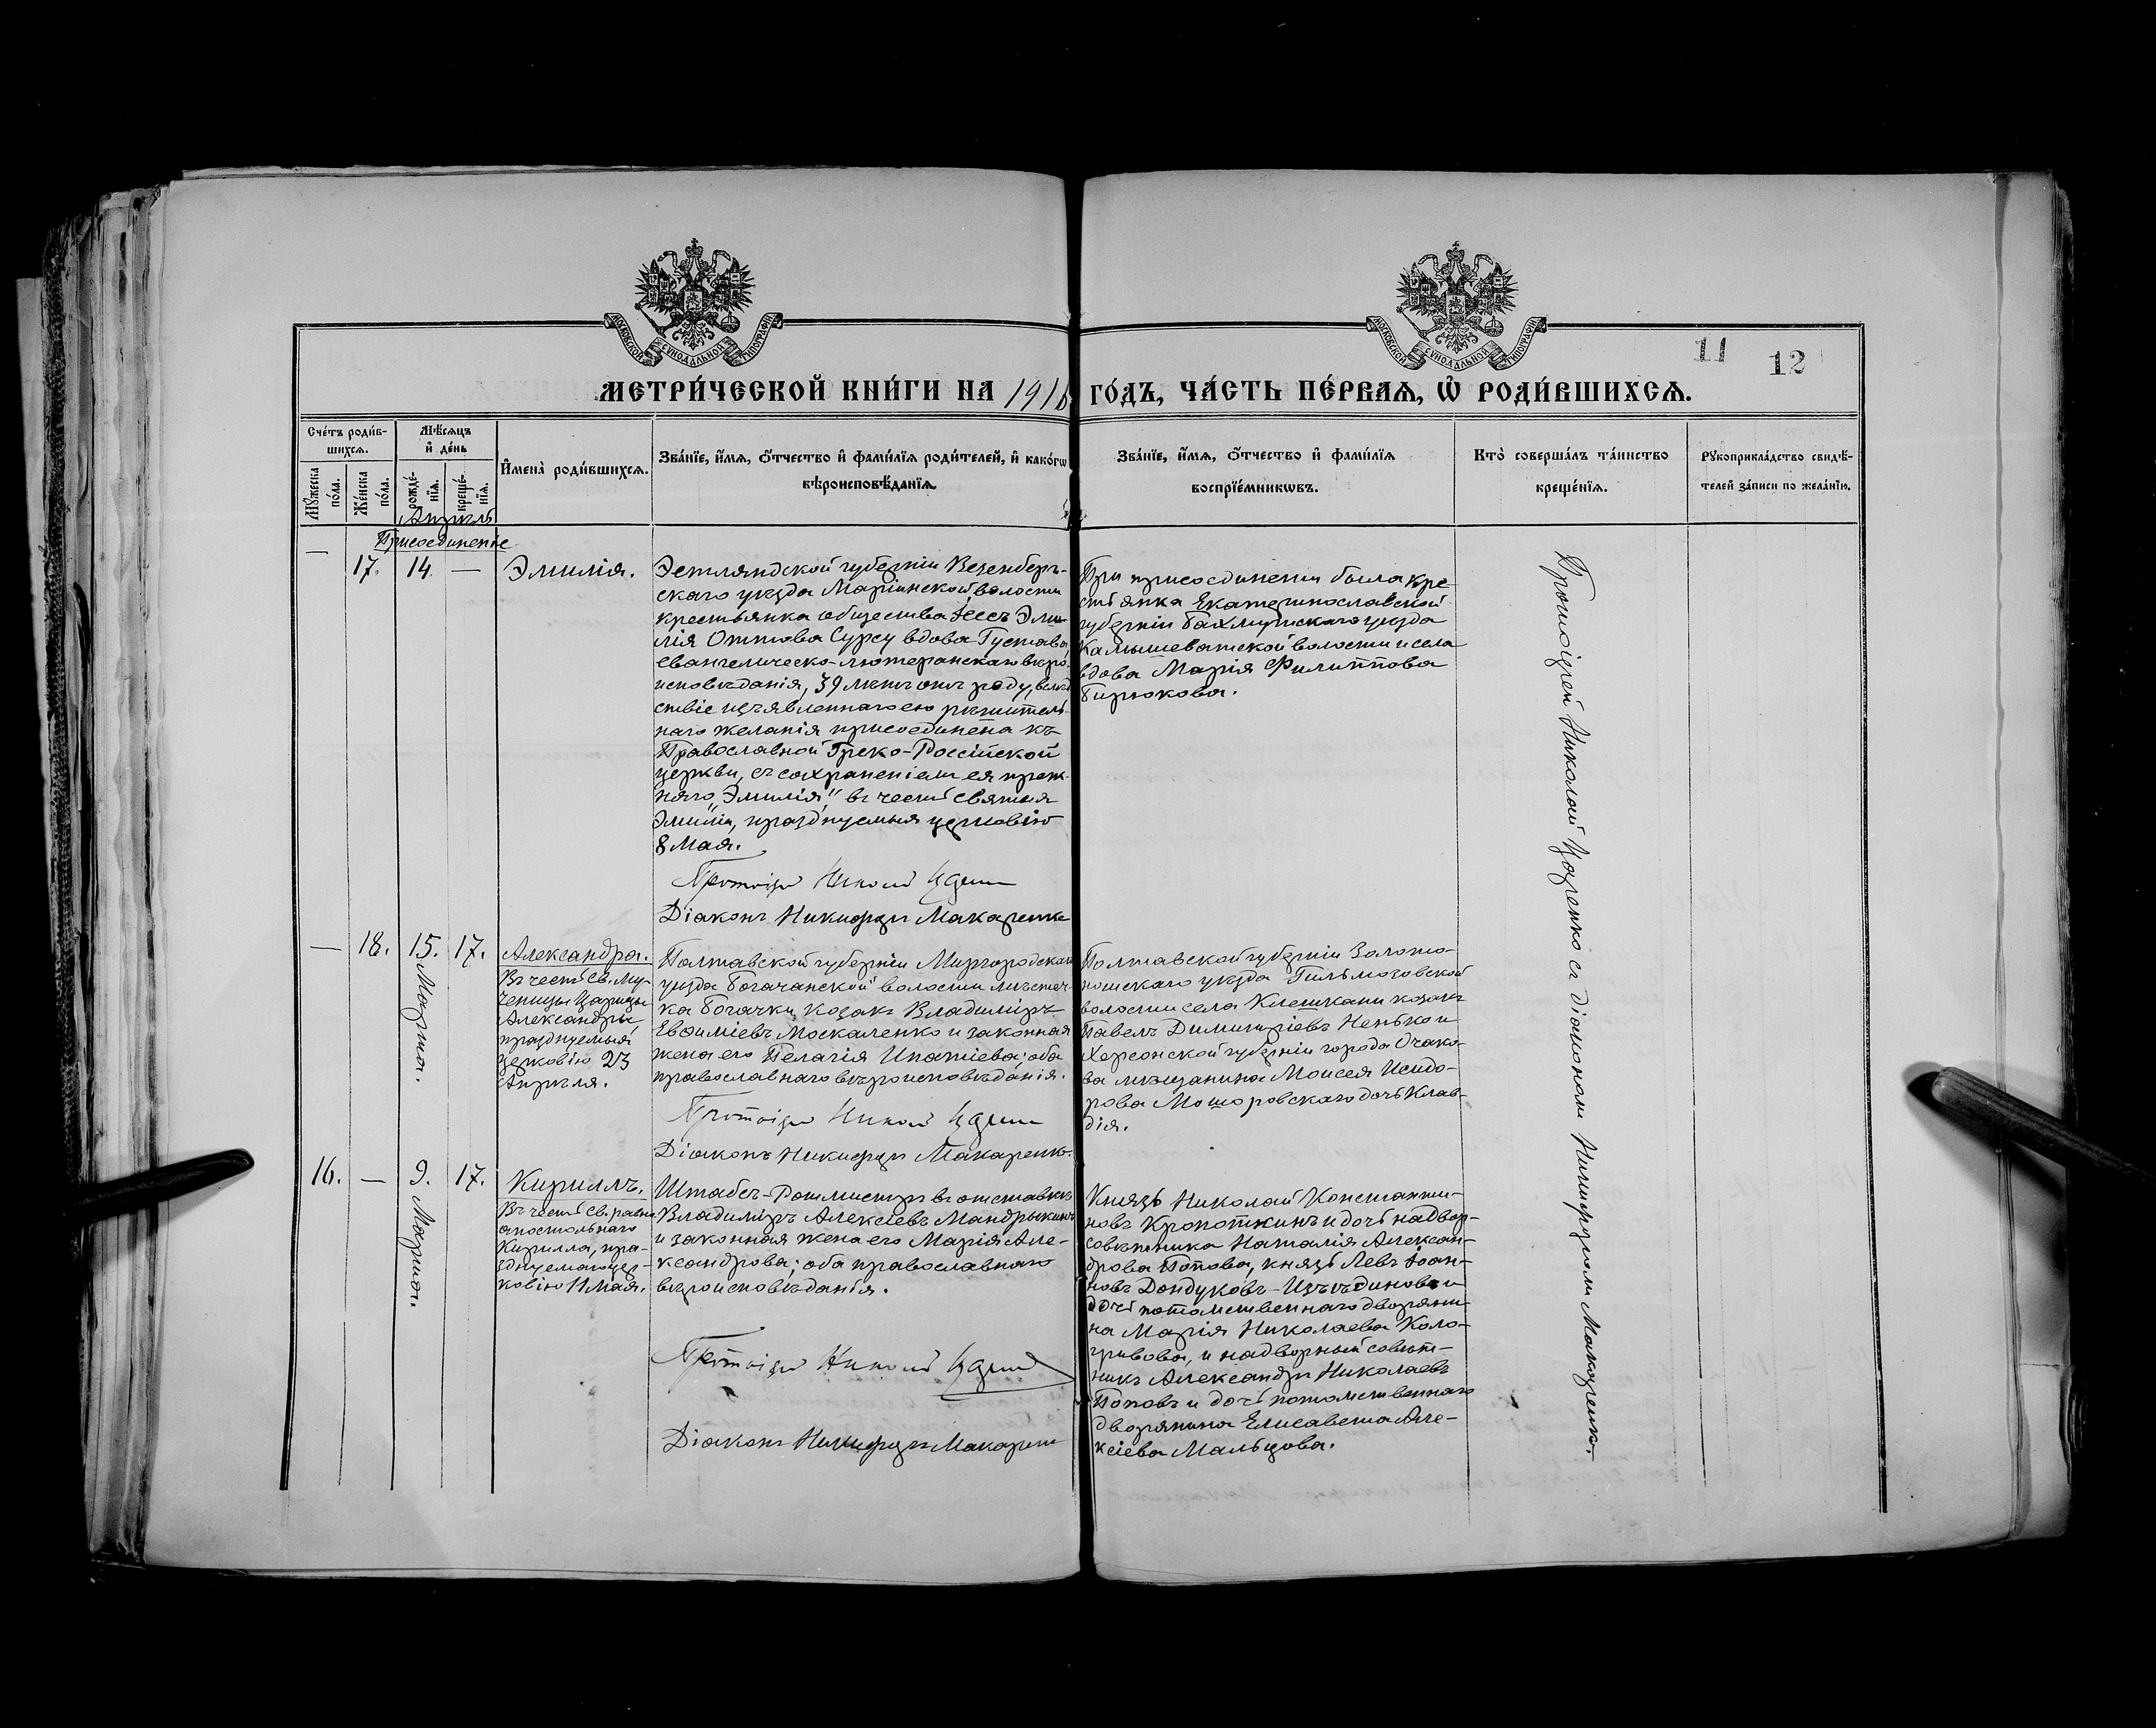 МОСКОВСКОЙ СѴНОДАЛЬНОЙ ТИПОГРАФІИ
МОСКОВСКОЙ СѴНОДАЛЬНОЙ ТИПОГРАФІИ
11 12
МЕТРИ́ЧЕСКОЙ КНИ́ГИ НА 1916 ГО́ДЪ, ЧА́СТЬ ПЕ́РВАѦ, Ѡ҆ РОДИ́ВШИХСѦ.
Сче́тъ роди́в-
шихсѧ.
Мꙋ́жеска по́ла.
Же́нска по́ла.
Мѣ́сѧцъ
и҆ де́нь
рожде́-
нїѧ.
креще́-
нїѧ.
И҆мена̀ роди́вшихсѧ.
Зва́нїе, и҆́мѧ, ѻ҆́тчество и҆ фами́лїѧ роди́телей, и҆ како́гѡ
вѣроисповѣ́данїѧ.
Зва́нїе, и҆́мѧ, ѻ҆́тчество и҆ фами́лїѧ
воспрїе́мникѡвъ.
Кто̀ соверша́лъ та́инство
креще́нїѧ.
Рꙋкоприкла́дство свидѣ́-
телей за́писи по жела́нїю.
Апрѣль
Присоединеніе
— 17. 14. — Эмилія.
Эстляндской губерніи Везенберг-
скаго уѣзда Маріинской волости
крестьянка общества Эми-
лія Оттова Сурсу вдова Густава,
Евангелическо-лютеранскаго вѣро-
исповѣданія, 39 лѣтъ отъ роду, вслѣд
ствіе изъявленнаго ею рѣшитель-
наго желанія присоединена къ
Православной Греко-Россійской
церкви, съ сохраненіемъ ея преж-
няго „Эмилія" въ честь святыя
Эмиліи, празднуемыя церковію
8 Мая.
Протоіерей Николай
Діаконъ Никифоръ Макаренко
При присоединеніи была кре-
стьянка Екатеринославской
губерніи Бахмутскаго уѣзда
Камышеватской волости и села
вдова Марія Филиппова
Бирюкова.
— 18. 15. 17. Марта.
Александра.
Въ честь св. му-
ченицы Царицы
Александры,
празднуемыя
церковію 23
Апрѣля.
Полтавской губерніи Миргородскаго
уѣзда Богачанской волости мѣстеч-
ка Богачки, козакъ Владиміръ
Евѳиміевъ Москаленко и законная
жена его Пелагія Ипатіева; оба
православнаго вѣроисповѣданія.
Протоіерей Николай
Діаконъ Никифоръ Макаренко.
Полтавской губерніи Золото-
ношскаго уѣзда Гильмязовской
волости села Клешкани козакъ
Павелъ Димитріевъ Ненько и
Херсонской губерніи города Очако-
ва мѣщанина Моисея Исидо-
рова Мошоровскаго дочь Клав-
дія.
16. — 9. 17. Марта.
Кириллъ.
Въ честь св. равно
апостольнаго
Кирилла, пра-
зднуемаго цер-
ковію 11 мая.
Штабсъ-Ротмистръ въ отставкѣ
Владиміръ Алексіевъ Мандрыкинъ
и законная жена его Марія Але-
ксандрова; оба православнаго
вѣроисповѣданія.
Протоіерей Николай
Діаконъ Никифоръ Макаренко
Князь Николай Константи-
новъ Кропоткинъ и дочь надвор-
совѣтника Наталія Алексан-
дрова Попова, князь Левъ Іоан-
новъ Дондуковъ-Изъѣдиновъ и
дочь потомственнаго дворяни-
на Марія Николаева Коло-
гривова, и надворный совѣт-
никъ Александръ Николаевъ
Поповъ и дочь потомственнаго
дворянина Елисавета Але-
ксіева Мальцова.
Протоіерей Николай Цѣаренко съ діакономъ Никифоромъ Макаренко.